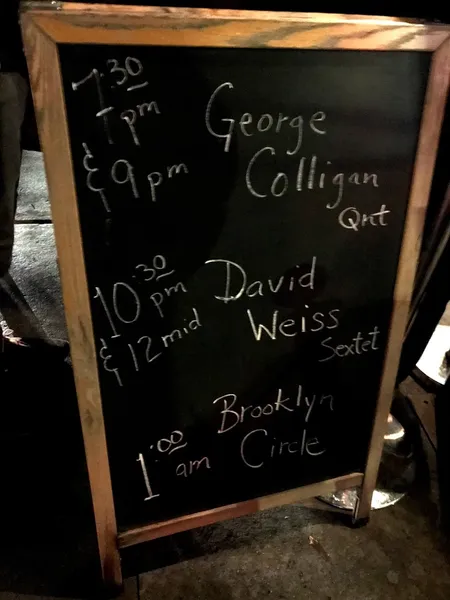 7:30 pm
& 9 pm
George
Colligan
Qnt
10:30 pm
& 12 mid
David
Weiss
Sextet
1:00 am
Brooklyn
Circle